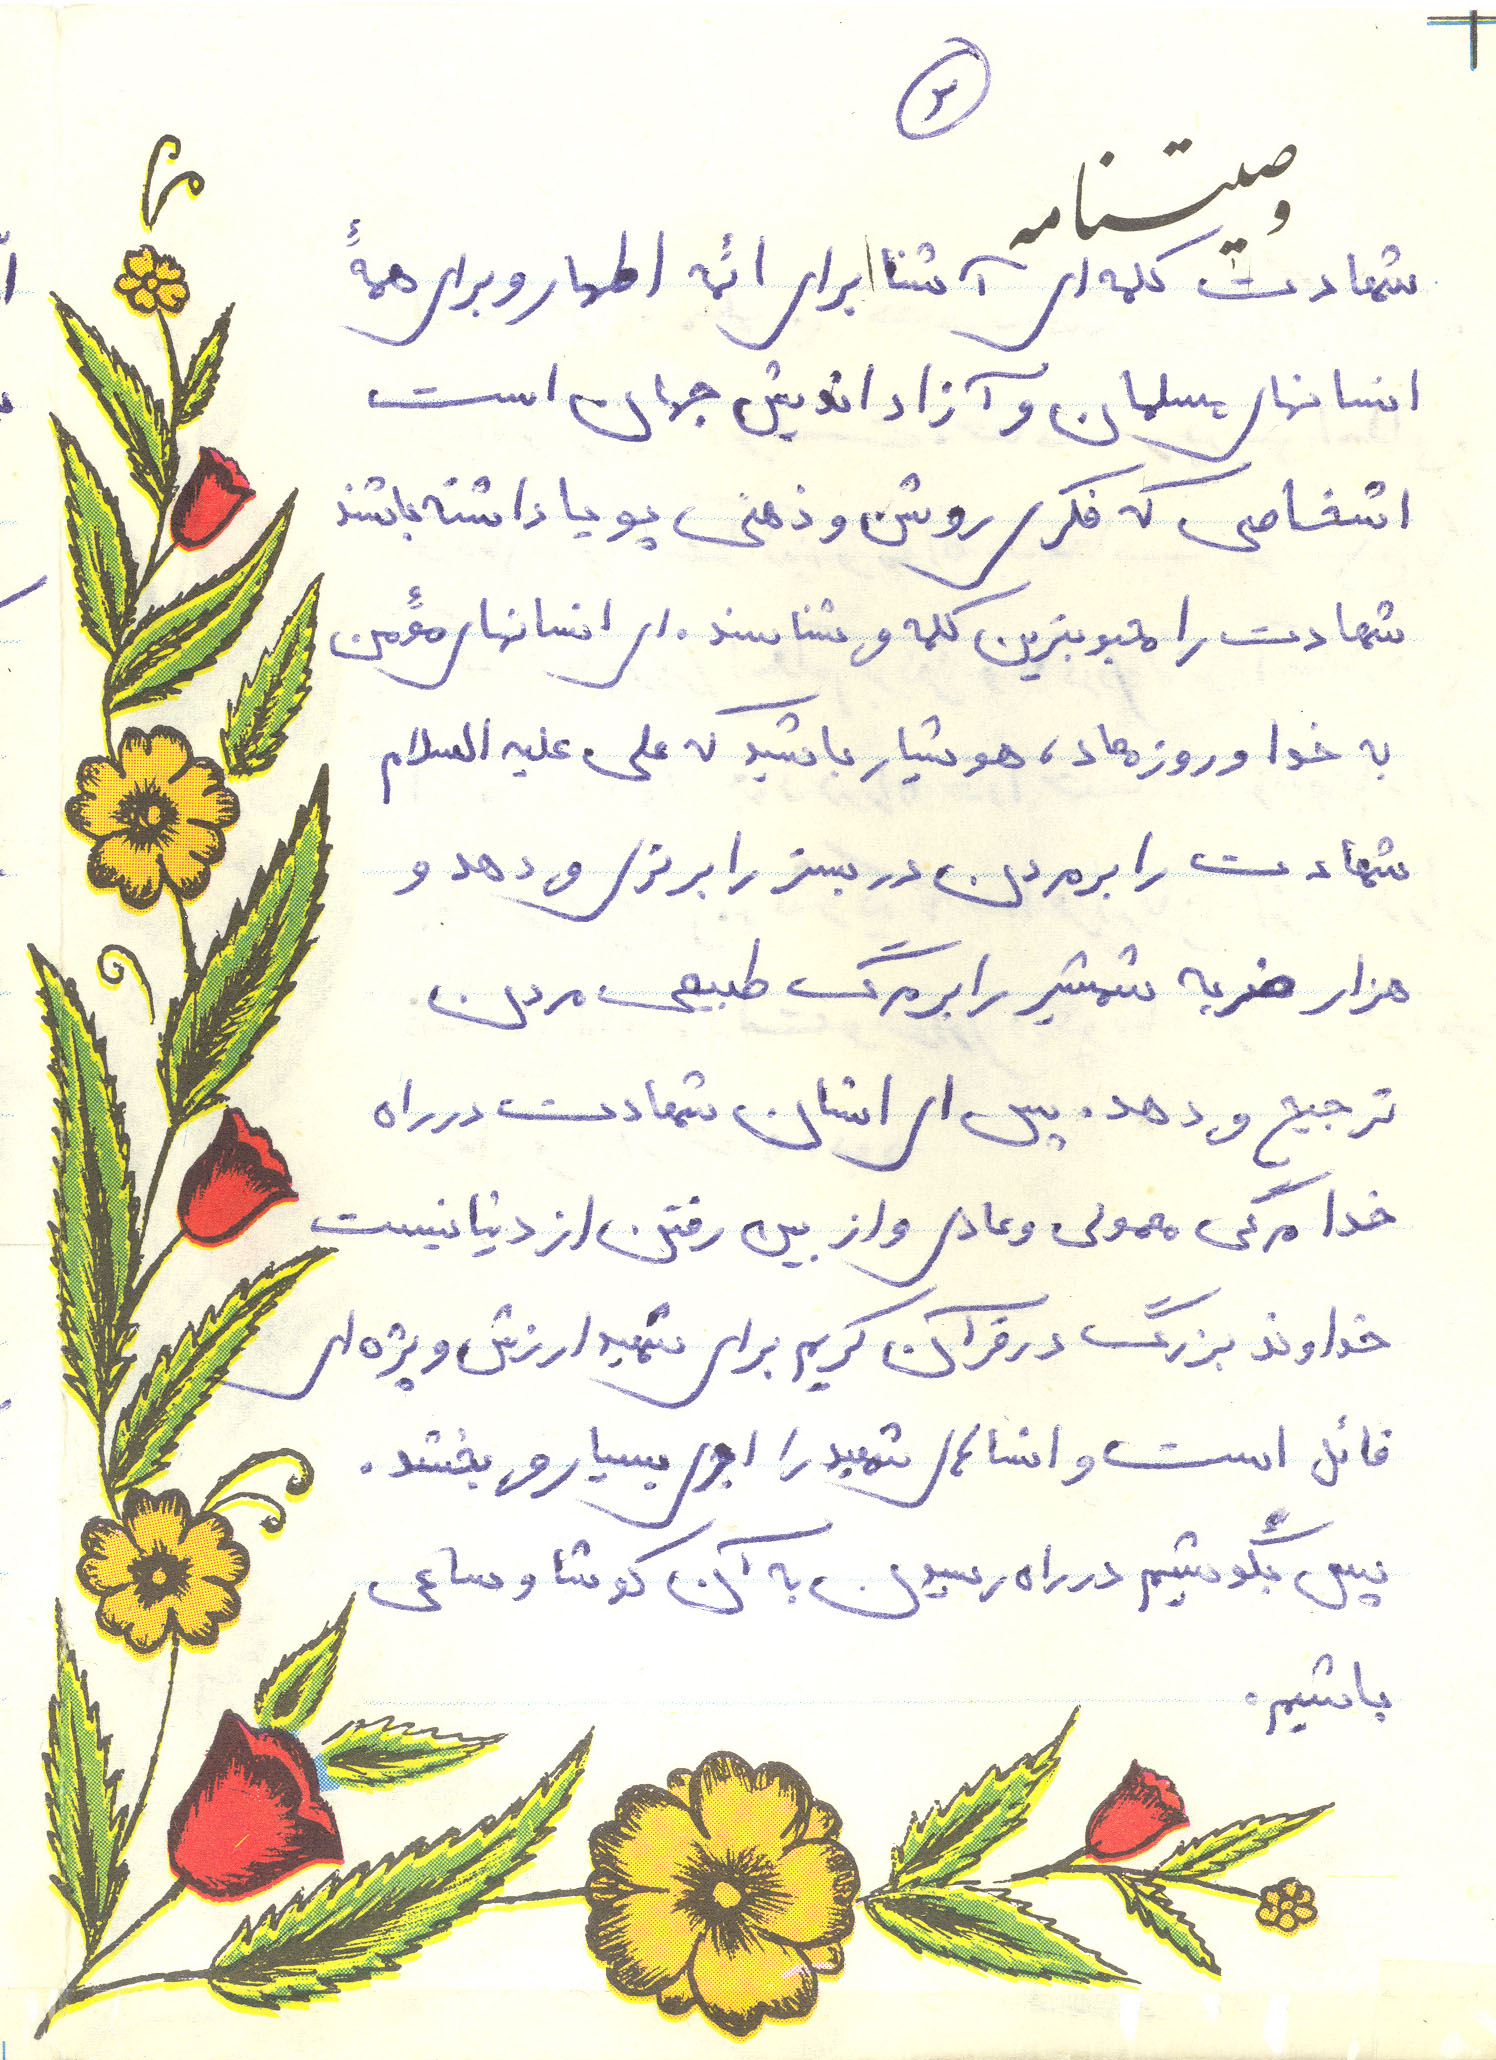 ۲
وصیتنامه
شهادت کلمه ای آشنا برای ائمه اطهار و برای همهٔ
انسانهای مسلمان و آزاد اندیش جهان است
اشخاصی که فکری روشن و ذهنی پویا داشته باشند
شهادت را محبوبترین کلمه می شناسند. ای انسانهای مؤمن
به خدا و روز معاد، هوشیار باشید که علی علیه السلام
شهادت را بر مردن در بستر را برتری می دهد و
هزار ضربه شمشیر را بر مرگ طبیعی مردن
ترجیح می دهد. پس ای انسان شهادت در راه
خدا مرگی معمولی و عادی و از بین رفتن از دنیا نیست
خداوند بزرگ در قرآن کریم برای شهید ارزش ویژه ای
قائل است و انسانهای شهید را اجری بسیار می بخشد.
پس بکوشیم در راه رسیدن به آن کوشا و ساعی
باشیم.